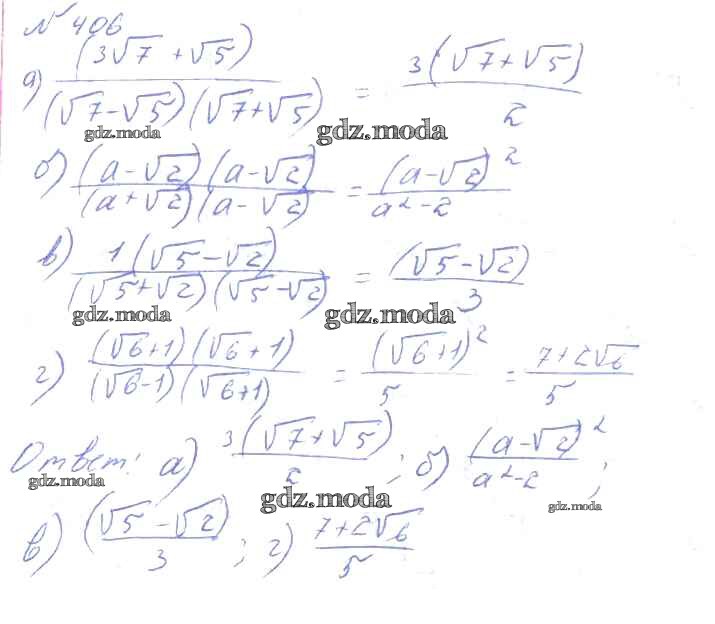 № 406
а) (3√7 + √5) / (√7-√5)(√7+√5) = 3(√7+√5) / 2
gdz.moda gdz.moda
б) (a-√2)(a-√2) / (a+√2)(a-√2) = (a-√2)² / a²-2
в) 1(√5-√2) / (√5+√2)(√5-√2) = (√5-√2) / 3
gdz.moda gdz.moda
г) (√6+1)(√6+1) / (√6-1)(√6+1) = (√6+1)² / 5 = 7+2√6 / 5
Ответ: а) 3(√7+√5) / 2 ; б) (a-√2)² / a²-2 ;
gdz.moda gdz.moda gdz.moda
в) (√5-√2) / 3 ; г) 7+2√6 / 5